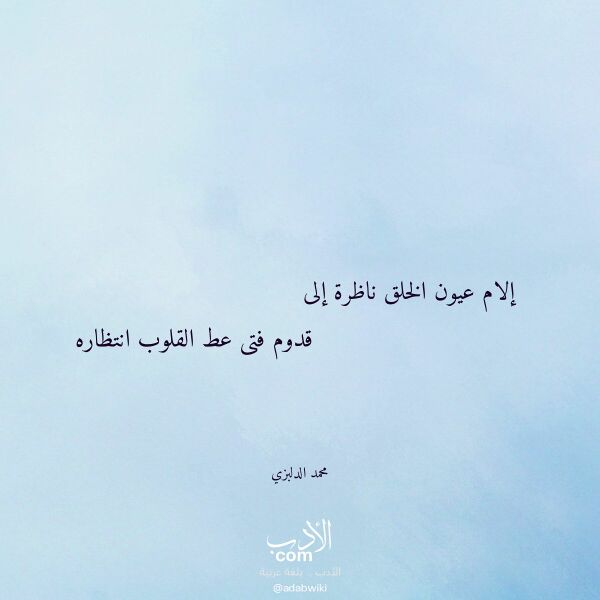 إلام عيون الخلق ناظرة إلى
قدوم فتى عط القلوب انتظاره
محمد الدلبزي
الأدب
com
الأدب .. بلغة عربية
@adabwiki